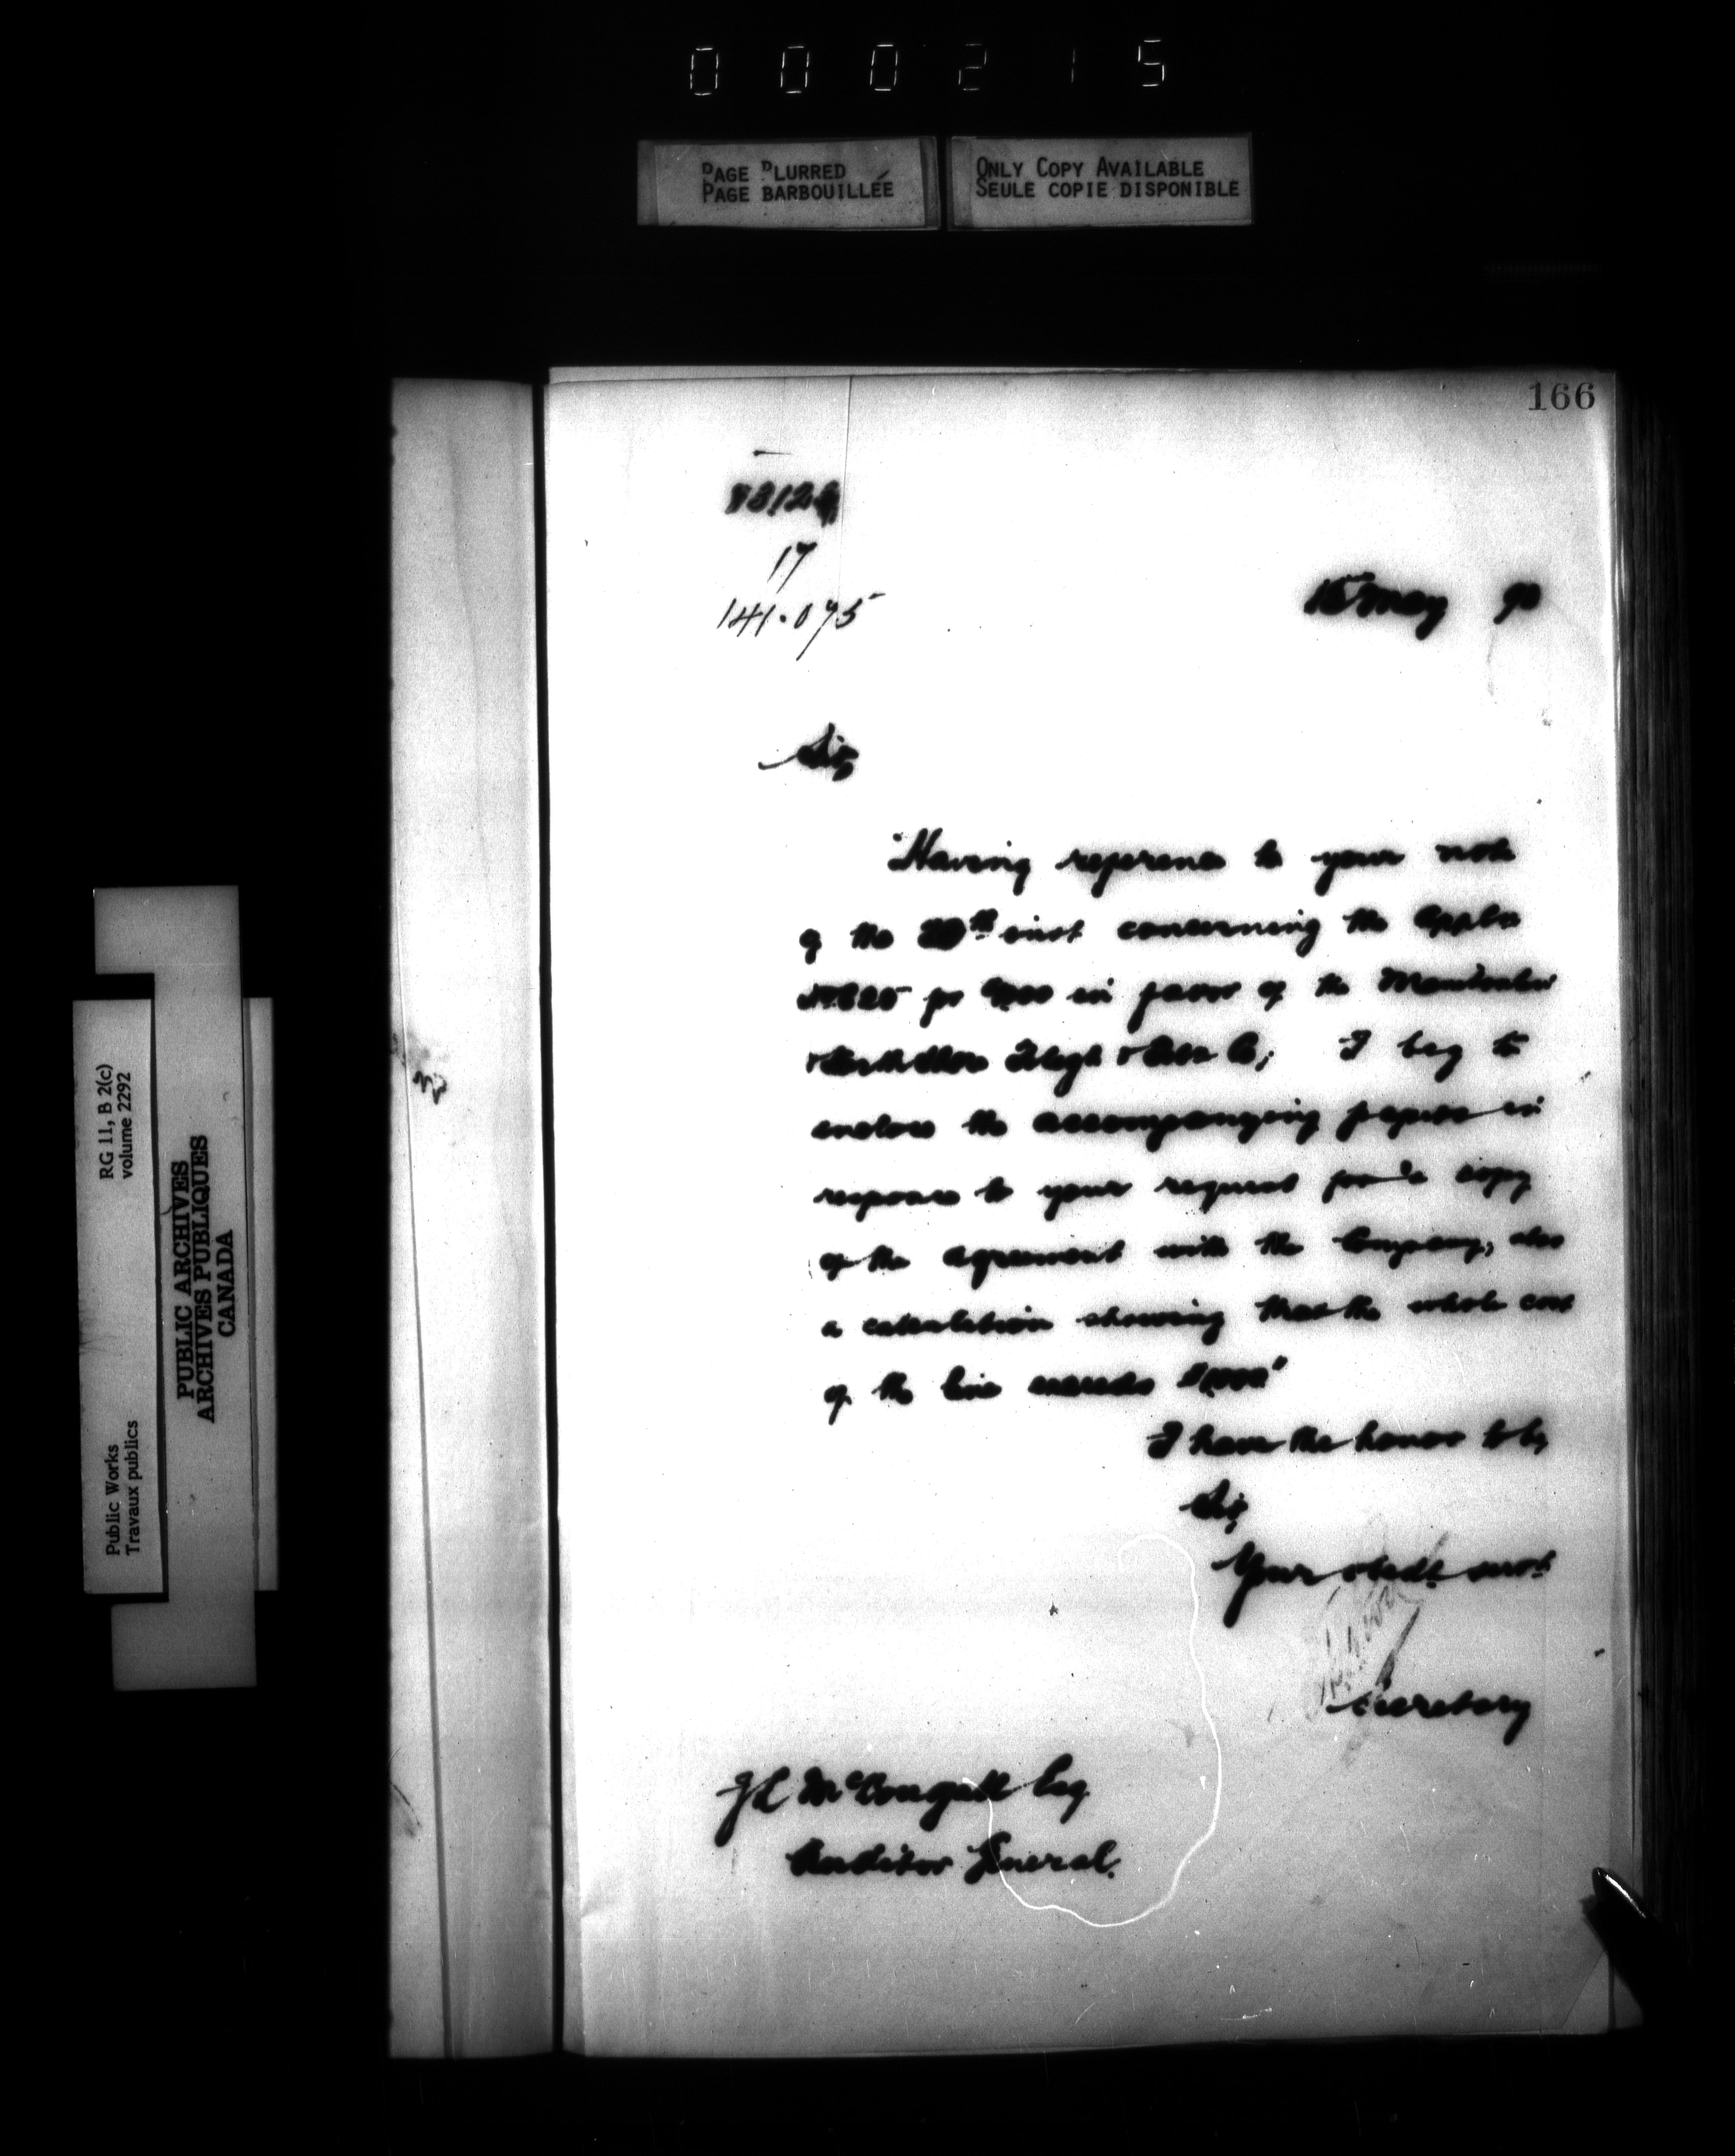 000215
PAGE BLURRED
PAGE BARBOUILLÉE
ONLY COPY AVAILABLE
SEULE COPIE DISPONIBLE
RG 11, B 2(c)
volume 2292
Public Works
Travaux publics
PUBLIC ARCHIVES
ARCHIVES PUBLIQUES
CANADA
166
17
141.075
15 May 90
Sir,
Having reference to your note
of the inst concerning the Appln
in favor of the
& Telegh & Co; I beg to
enclose the accompanying papers in
response to your request for a copy
of the agreement with the Company, also
a calculation showing that the whole cost
of the line exceeds
I have the honor to be,
Sir,
Your obedt. servt.
Secretary
J L McDougall Esq
Auditor General.